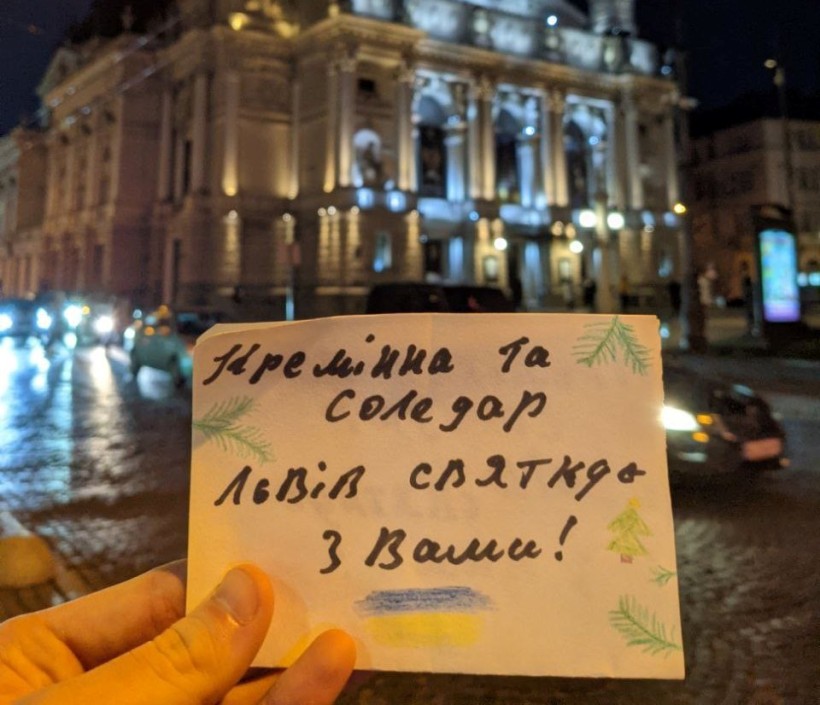 Кремінна та
Соледар
Львів святкує
з Вами!